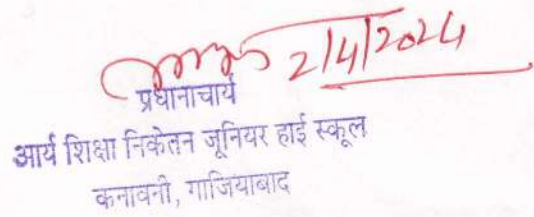 2/4/2024
प्रधानाचार्य
आर्य शिक्षा निकेतन जूनियर हाई स्कूल
कनावनी, गाजियाबाद